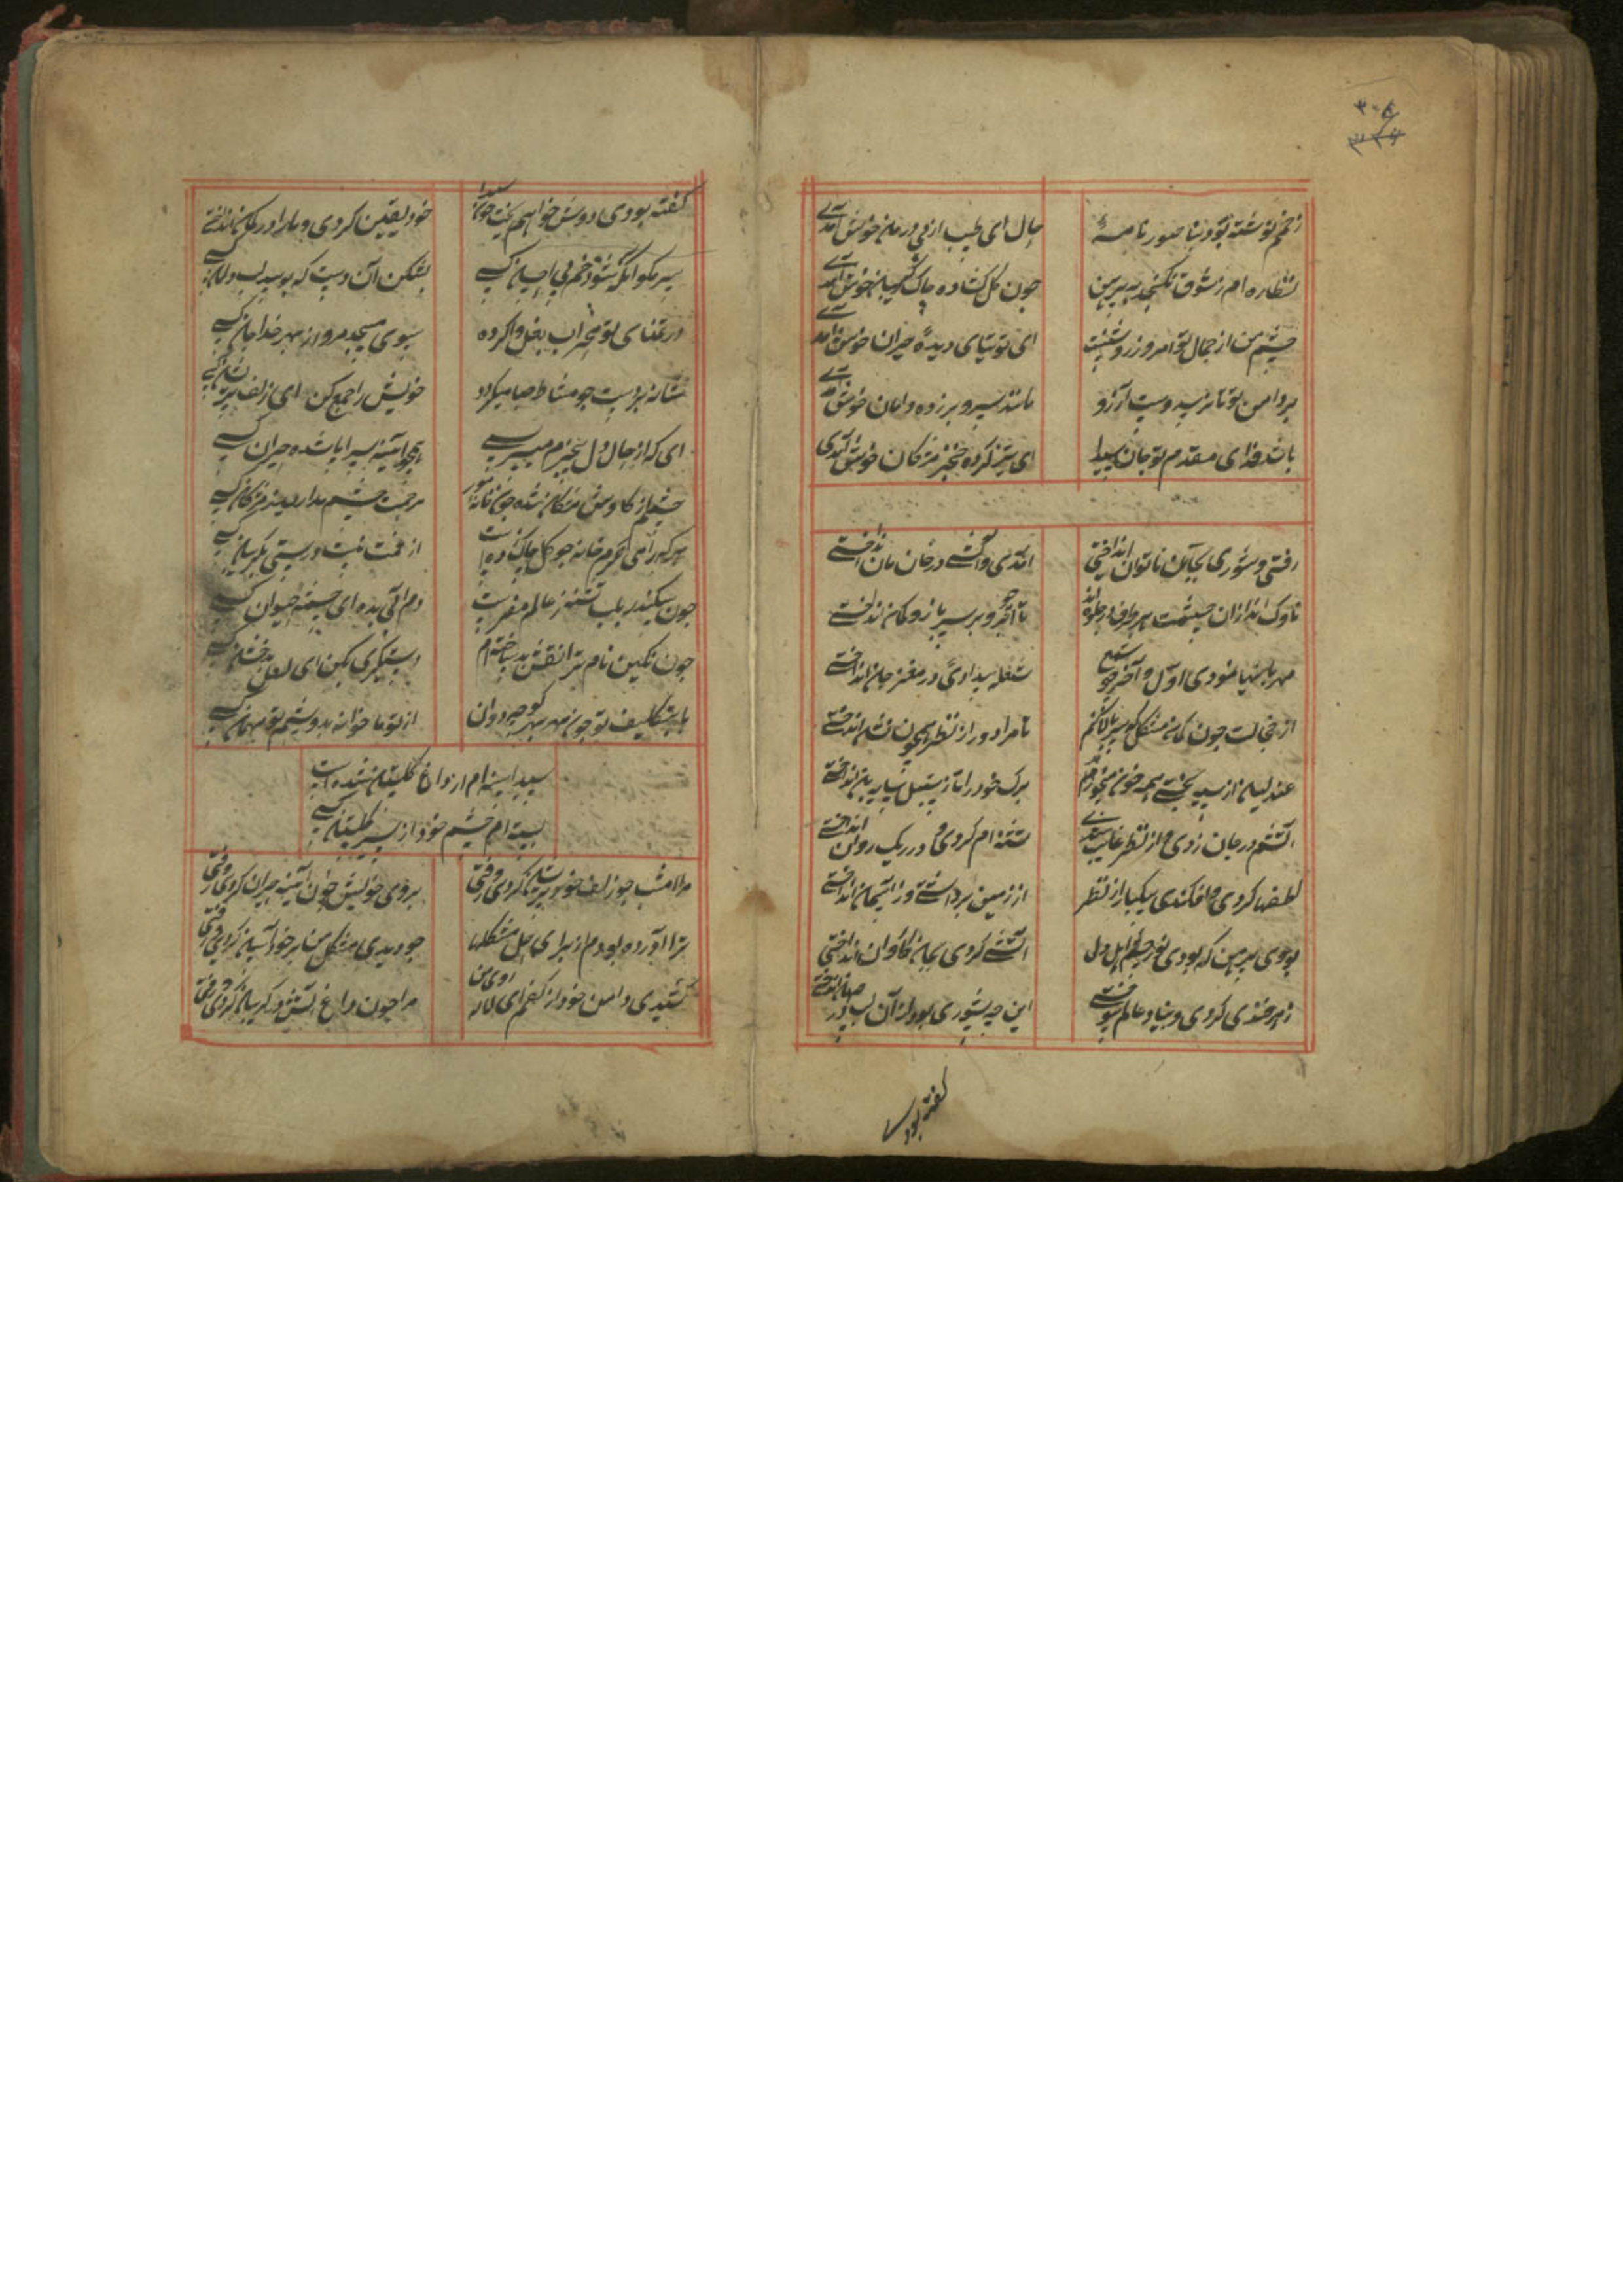 ۳۰۸
زخمم نوشته بود بناصور نامهٔ
حال ای طبیب از پی درمان خوش آمدی
نظاره ام ز شوق نگنجد به پیرهن
چون گل گشاده چاک گریبان خوش آمدی
چشم من از جمال تو امروز روشنست
ای توتیای دیدهٔ حیران خوش آمدی
بر دامن تو تا نرسد دست آرزو
مانند سرو بر زده دامان خوش آمدی
باشد فدای مقدم تو جان سیدا
ای تیز کرده خنجر مژکان خوش آمدی
رفتی و شوری بجان ناتوان انداختی
آمدی و آتشی در خان مان انداختی
ناوک اندازان چشمت هر طرف در جلوه اند
تا ابرو بر سر بازو کمان انداختی
مهربانیها نمودی اول و آخر چو شمع
شعله بیدادی در مغز جان انداختی
از خجالت چون کمان مشکل که سر بالا کنم
نامراد دور از نظر همچون نشان انداختی
عندلیبان از سیه بختی همه خون میخورند
برک خود را تا ز سنبل سایبان انداختی
آتشم در جان زدی و از نظر غایب شدی
تشنه ام کردی و در ریک روان انداختی
لطفها کردی و افکندی بیکبار از نظر
از زمین برداشتی وز آسمان انداختی
بوی پیرهن که بودی نور چشم اهل دل
آتشی کردی بجان کاروان انداختی
زهرخندی کردی و بنیاد عالم سوختی
این چه شوری بود از آن لب در جهان انداختی
گفته بودی
گفته بودی دوش خواهم ریخت خون سیدا
خود یقین کردی و ما را در گمان انداختی
سر مکو انکه نشود خم پی احسان کسی
بشکن آن دست که بوسد لب دامان کسی
در تمنای تو محراب بغل وا کرده
سوی مسجد مرو از بهر خدا جان کسی
شانه بر دست چو مشاطه صبا میکردد
خویش را جمع کن ای زلف پریشان کسی
ای که از حال دل بیخبرم میپرسی
همچو آئینه سراپا شده حیران کسی
چشمم از کاوش مژکان شده چون خانه مور
مرحمت چشم مدارید ز مژکان کسی
هر که را می نکرم جامه چو کل چاک زده است
از غمت نیست درستی بگریبان کسی
چون سکندر بلب تشنه ز عالم رفتست
دم آبی بده ای چشمه حیوان کسی
چون نکین نام ترا نقش بدل ساخته ام
دستگیری بکن ای لعل بدخشان کسی
بی تکلیف تو چون مهر بهر کوچه دوان
از تو ما خوانده بدوشیم تو مهمان کسی
سیدا سینه ام از داغ گلستان شده است
بسته ام چشم خود از سیر گلستان کسی
مرا امشب چو زلف خود پریشان کردی و رفتی
بروی خویش چون آئینه حیران کردی و رفتی
ترا آورده بودم از برای حل مشکلها
چو دیدی مشکل من بر خود آسان کردی و رفتی
کشیدی دامن خود از کفم ای لاله روی من
مرا چون داغ آتش در گریبان کردی و رفتی